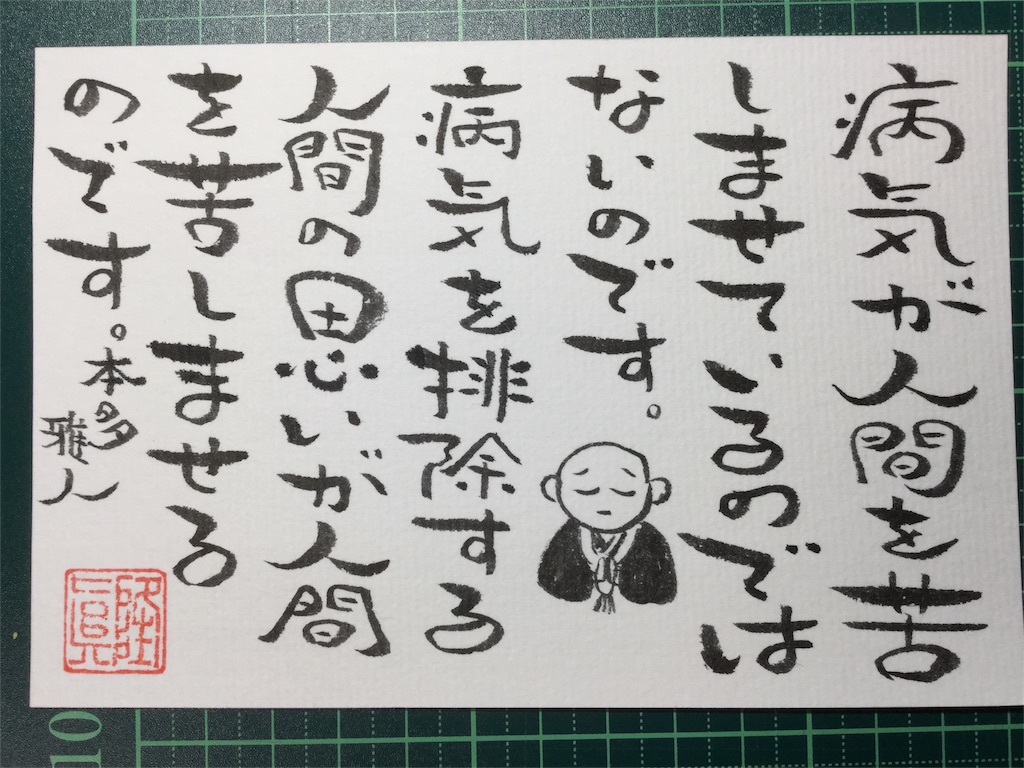 病気が人間を苦
しませているのでは
ないのです。
病気を排除する
人間の思いが人間
を苦しませる
のです。
本多
雅人
隆
10